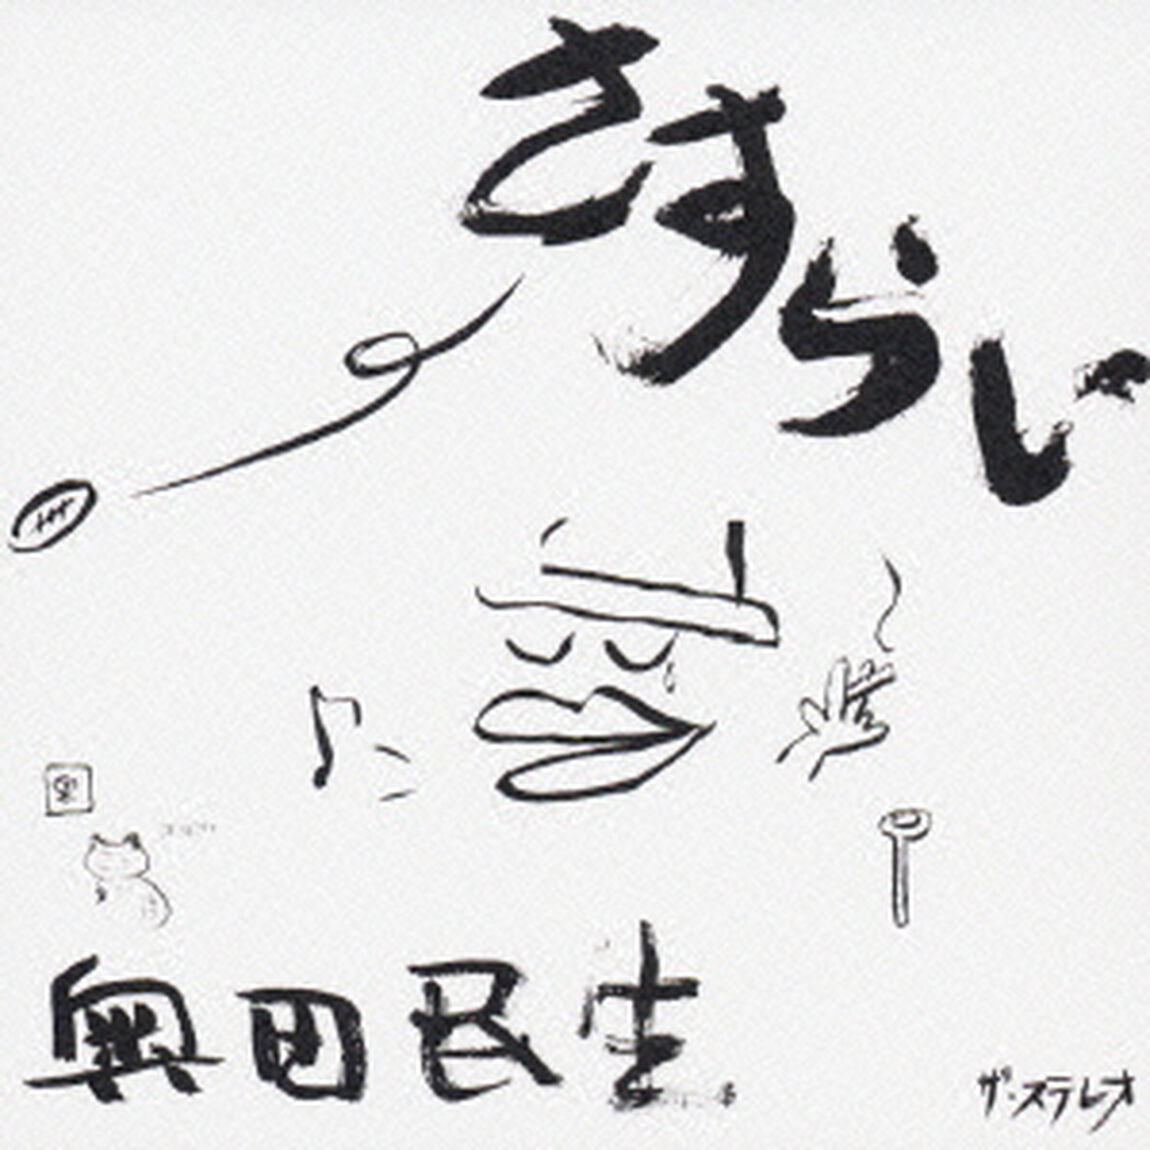 さすらい
奥田民生
ザ・ステレオ